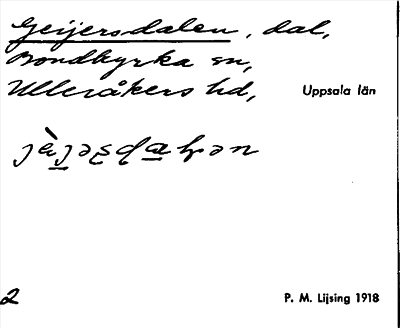 Geijersdalen, dal,
Bondkyrka sn,
Ulleråkers hd, Uppsala län
2 P. M. Lijsing 1918